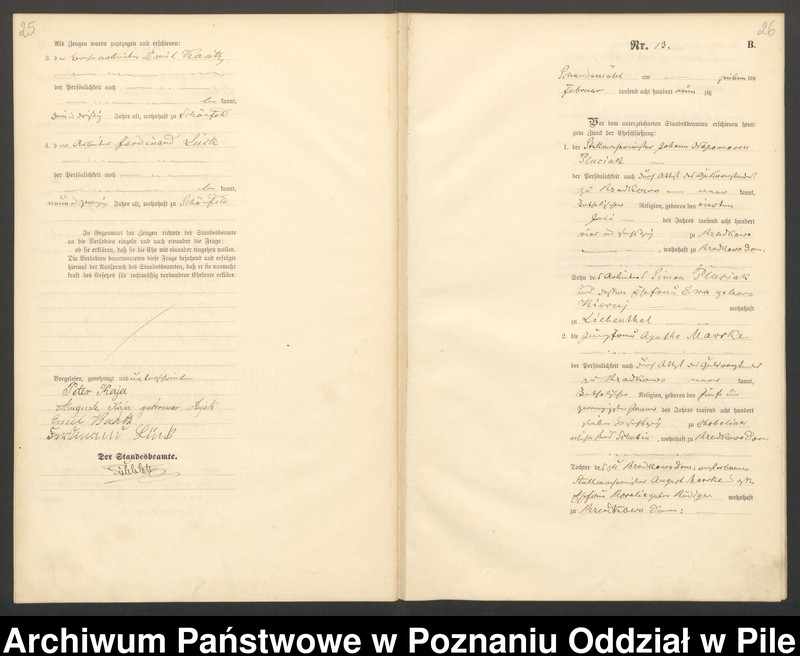 25
Als Zeugen waren zugezogen und erschienen:
3. der Emil Kaatz
der Persönlichkeit nach
kannt,
Jahre alt, wohnhaft zu Schönfeld
4. der Arbeiter Ferdinand Lück
der Persönlichkeit nach
kannt,
Jahre alt, wohnhaft zu Schönfeld
In Gegenwart der Zeugen richtete der Standesbeamte
an die Verlobten einzeln und nach einander die Frage:
ob sie erklären, daß sie die Ehe mit einander eingehen wollen.
Die Verlobten beantworteten diese Frage bejahend und erfolgte
hierauf der Ausspruch des Standesbeamten, daß er sie nunmehr
kraft des Gesetzes für rechtmäßig verbundene Eheleute erkläre.
Vorgelesen, genehmigt und unterschrieben
Peter Kaja
Auguste Kaja geborener
Emil Kaatz
Ferdinand Lück
Der Standesbeamte.
26
Nr. 13. B.
Schneidemühl am sieben ten
Februar tausend acht hundert neun zig
Vor dem unterzeichneten Standesbeamten erschienen heute
zum Zweck der Eheschließung:
1. der Johann Nepomucen
Pluciak
der Persönlichkeit nach durch Attest des
zu Krzadkowo kannt,
katholischer Religion, geboren den vierten
Juli des Jahres tausend acht hundert
vier und sechszig zu Krzadkowo
, wohnhaft zu Krzadkowo Dom.
Sohn des Arbeiters Simon Pluciak
und dessen Ehefrau Ewa geborene
wohnhaft
zu Liebenthal
2. die Jungfrau Agathe Marcke
der Persönlichkeit nach durch Attest des
zu Krzadkowo kannt,
katholischer Religion, geboren den fünf und
zwanzigsten Januar des Jahres tausend acht hundert
sieben und sechszig zu
, wohnhaft zu Krzadkowo Dom.
Tochter des zu Krzadkowo Dom: verstorbenen
August Marcke und
Ehefrau Rosalie geborene Rüdiger wohnhaft
zu Krzadkowo Dom:
Archiwum Państwowe w Poznaniu Oddział w Pile